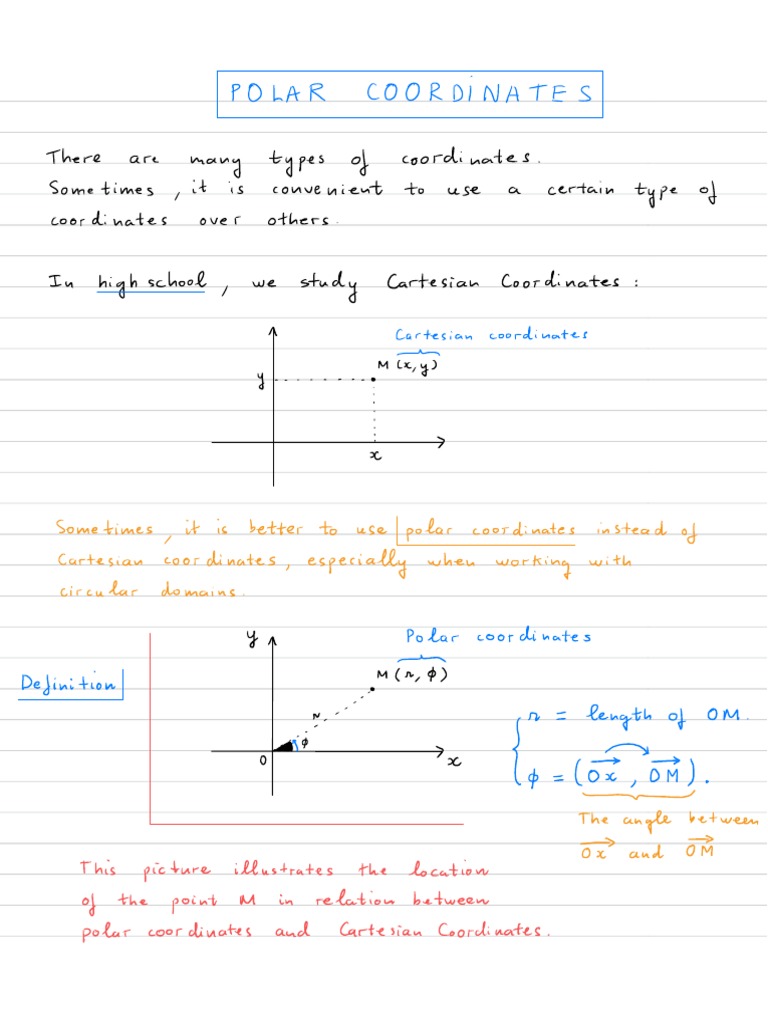 POLAR COORDINATES
There are many types of coordinates.
Sometimes, it is convenient to use a certain type of
coordinates over others.
In high school, we study Cartesian Coordinates :
Cartesian coordinates
M (x, y)
y
x
Sometimes, it is better to use polar coordinates instead of
Cartesian coordinates, especially when working with
circular domains.
y
Polar coordinates
M (r, ϕ)
Definition
r
ϕ
O
x
r = length of OM.
ϕ = (Ox, OM).
The angle between
Ox and OM
This picture illustrates the location
of the point M in relation between
polar coordinates and Cartesian Coordinates.